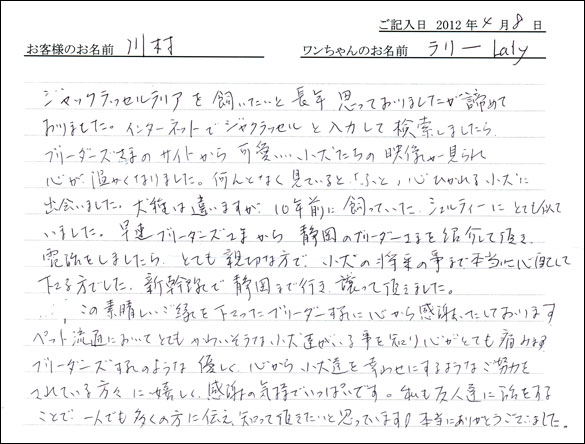 ご記入日 2012年4月8日
お客様のお名前 川村 ワンちゃんのお名前 ラリー Laly
ジャックラッセルテリアを飼いたいと長年思っておりましたが諦めて
おりました。インターネットでジャックラッセルと入力して検索しましたら
ブリーダーズさまのサイトから可愛い…小犬たちの映像が見られ
心が温かくなりました。何んとなく見ていると、「ふと」心ひかれる小犬に
出会いました。犬種は違いますが、10年前に飼っていたシェルティーにとても似て
いました。早速ブリーダーズさまから静岡のブリーダーさまを紹介して頂き
電話をしましたら、とても親切な方で、小犬の将来の事まで本当に心配して
下さる方でした。新幹線で静岡まで行き譲って頂きました。
この素晴しいご縁を下さったブリーダーズさまに心から感謝いたしております
ペット流通においてとてもかわいそうな小犬達がいる事を知り心がとても痛みます
ブリーダーズさまのような優しく心から小犬達を幸わせにするようなご努力を
されている方々に嬉しく感謝の気持でいっぱいです。私も友人達に話をする
ことで一人でも多くの方に伝え知って頂きたいと思っています!本当にありがとうございました。